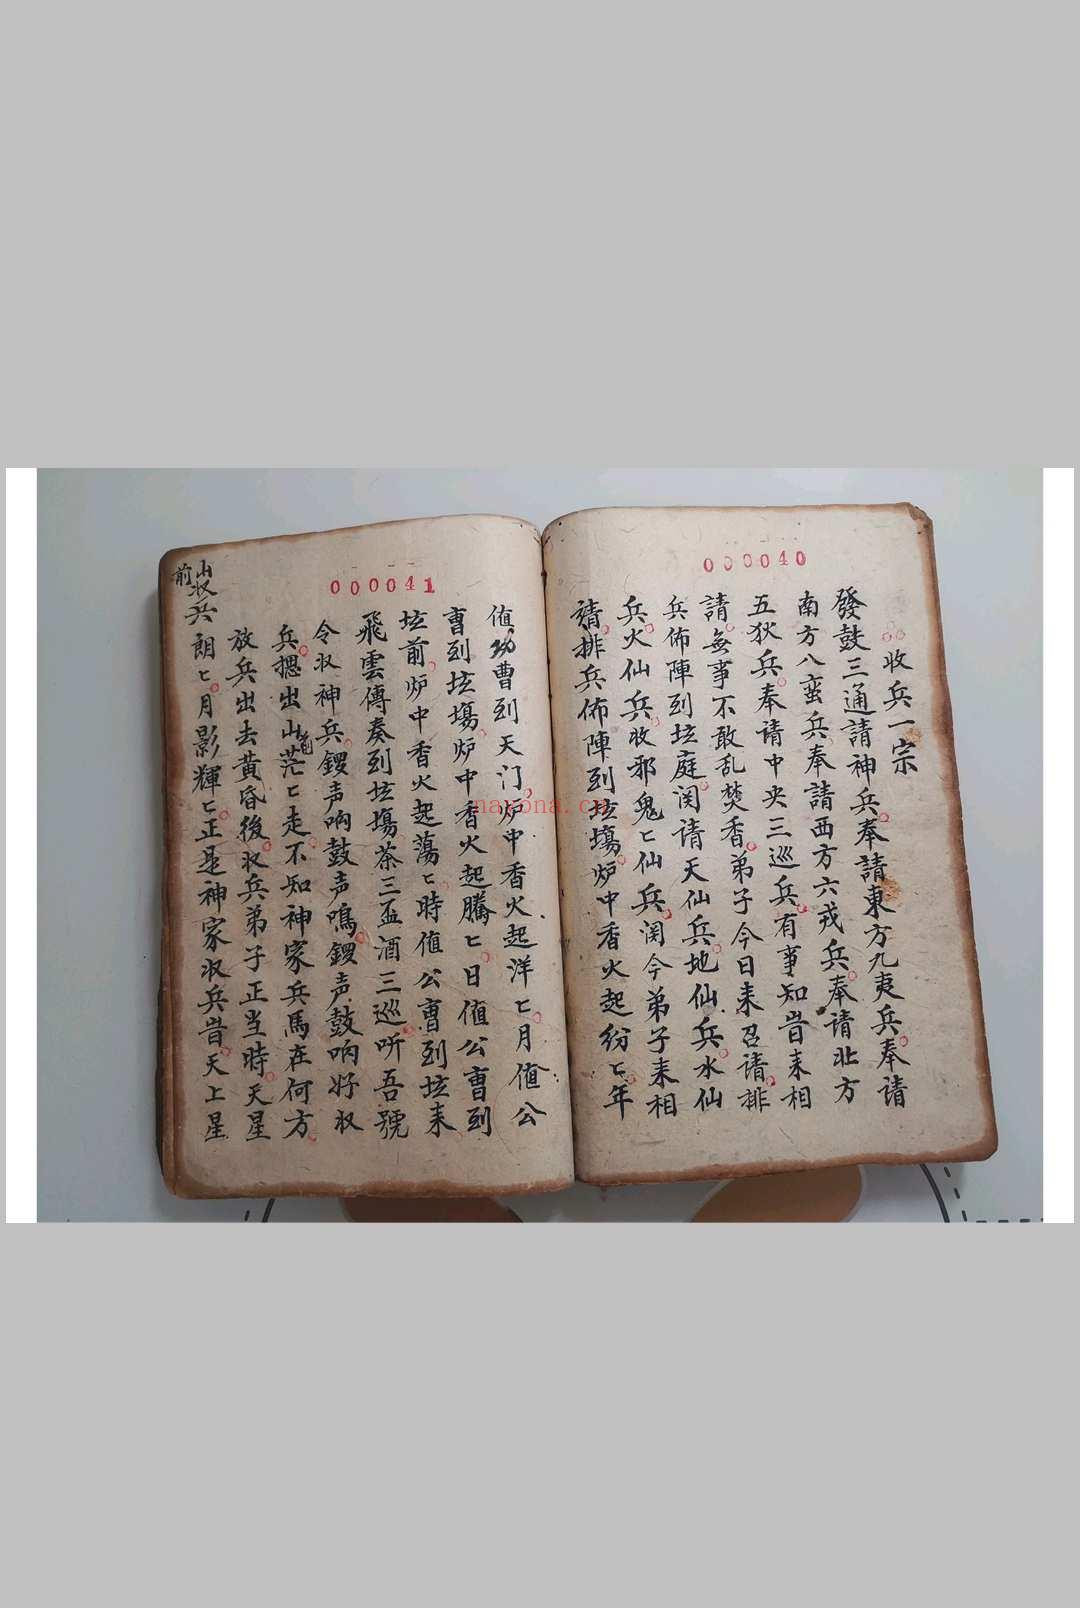 000040
收兵一宗
發鼓三通請神兵奉請東方九夷兵奉请
南方八蛮兵奉請西方六戎兵奉请北方
五狄兵奉请中央三巡兵有事知昔来相
請無事不敢乱焚香弟子今日来召请排
兵佈陣到坛庭闵请天仙兵地仙兵水仙
兵火仙兵收邪鬼匕仙兵闵今弟子来相
请排兵佈陣到坛塲炉中香火起纷匕年
000041
值功曹到天门炉中香火起洋匕月值公
曹到坛塲炉中香火起騰匕日值公曹到
坛前炉中香火起蕩匕時值公曹到坛来
飛雲傳奏到坛塲茶三盃酒三巡听吾號
令収神兵鑼声响鼓声鳴鑼声鼓响好収
兵摁出山茫匕走不知神家兵馬在何方
放兵出去黄昏後収兵弟子正当時天星
朗匕月影輝匕正是神家収兵昔天上星
山前収兵
nayona.cn